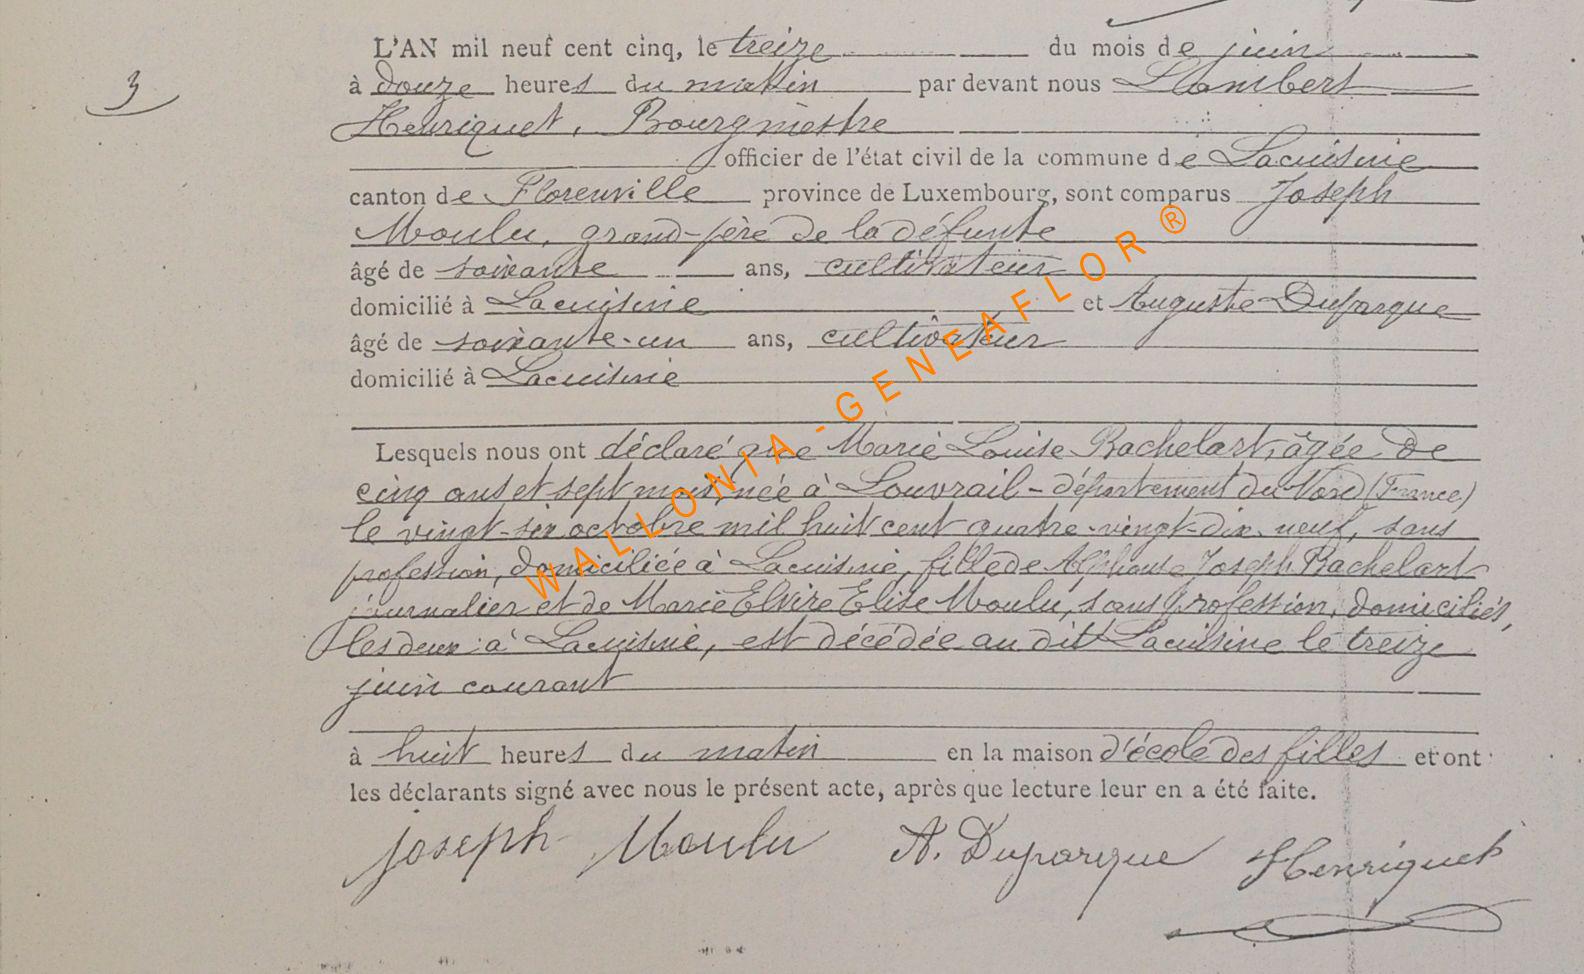 L'AN mil neuf cent cinq, le treize du mois de juin
3
à douze heures du matin par devant nous Lambert
Henriquet, Bourgmestre
officier de l'état civil de la commune de Lacuisine
canton de Florenville province de Luxembourg, sont comparus Joseph
Moulu, grand-père de la défunte
âgé de soixante ans, cultivateur
domicilié à Lacuisine et Auguste Duparque
âgé de soixante-un ans, cultivateur
domicilié à Lacuisine
Lesquels nous ont déclaré que Marie Louise Bachelart, âgée de
cinq ans et sept mois, née à Louvrail - département du Nord (France)
le vingt-six octobre mil huit cent quatre-vingt-dix-neuf, sans
profession, domiciliée à Lacuisine, fille de Alphonse Joseph Bachelart
journalier et de Marie Elvire Elise Moulu, sans profession, domiciliés,
les deux à Lacuisine, est décédée au dit Lacuisine le treize
juin courant
à huit heures du matin en la maison d'école des filles et ont
les déclarants signé avec nous le présent acte, après que lecture leur en a été faite.
Joseph Moulu A. Duparque Henriquet
WALLONIA-GENEAFLOR ®